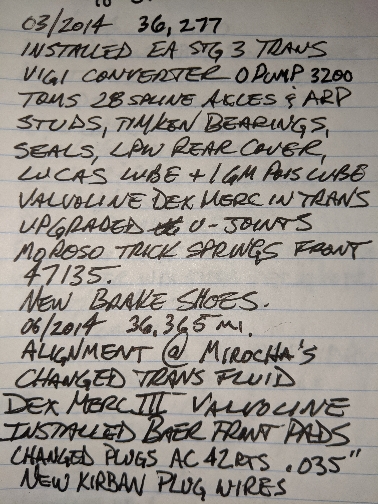 03/2014 36,277
INSTALLED EA STG 3 TRANS
VIGI CONVERTER O PUMP 3200
TOMS 28 SPLINE AXLES & ARP
STUDS, TIMKEN BEARINGS,
SEALS, LPW REAR COVER,
LUCAS LUBE + 1 GM POIS LUBE
VALVOLINE DEX MERC IN TRANS
UPGRADED U-JOINTS
MOROSO TRICK SPRINGS FRONT
47135.
NEW BRAKE SHOES.
06/2014 36,365 MI.
ALIGNMENT @ MIROCHA'S
CHANGED TRANS FLUID
DEX MERC III VALVOLINE
INSTALLED BAER FRONT PADS
CHANGED PLUGS AC 42RTS .035"
NEW KIRBAN PLUG WIRES